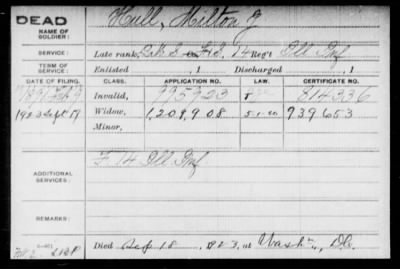 DEAD
NAME OF SOLDIER:
Hull, Hilton J
SERVICE:
Late rank, F 14 Reg't Ill Inf
TERM OF SERVICE:
Enlisted , 1 Discharged , 1
DATE OF FILING. CLASS. APPLICATION NO. LAW. CERTIFICATE NO.
Invalid, 995923 814336
1923 Sept 17 Widow, 1,208,908 939653
Minor,
F 14 Ill Inf
ADDITIONAL SERVICES:
REMARKS:
Died Sep 18, 1923, at Wash., D.C.